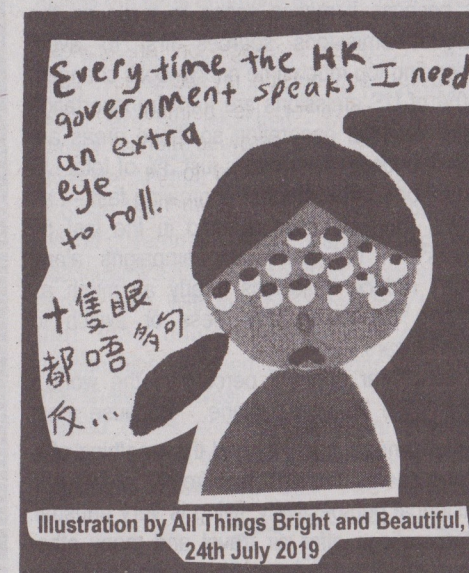 Every time the HK
government speaks I need
an extra
eye
to roll.
十隻眼
都唔夠
反...
Illustration by All Things Bright and Beautiful,
24th July 2019